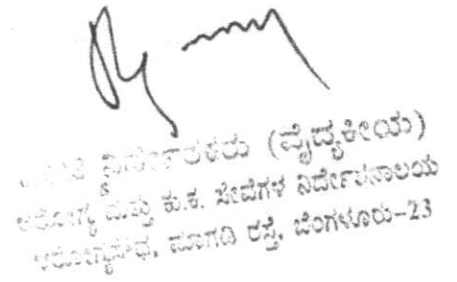 ನಿರ್ದೇಶಕರು (ವೈದ್ಯಕೀಯ)
ಆರೋಗ್ಯ ಮತ್ತು ಕು.ಕ. ಸೇವೆಗಳ ನಿರ್ದೇಶನಾಲಯ
ಆರೋಗ್ಯಸೌಧ, ಮಾಗಡಿ ರಸ್ತೆ, ಬೆಂಗಳೂರು-23